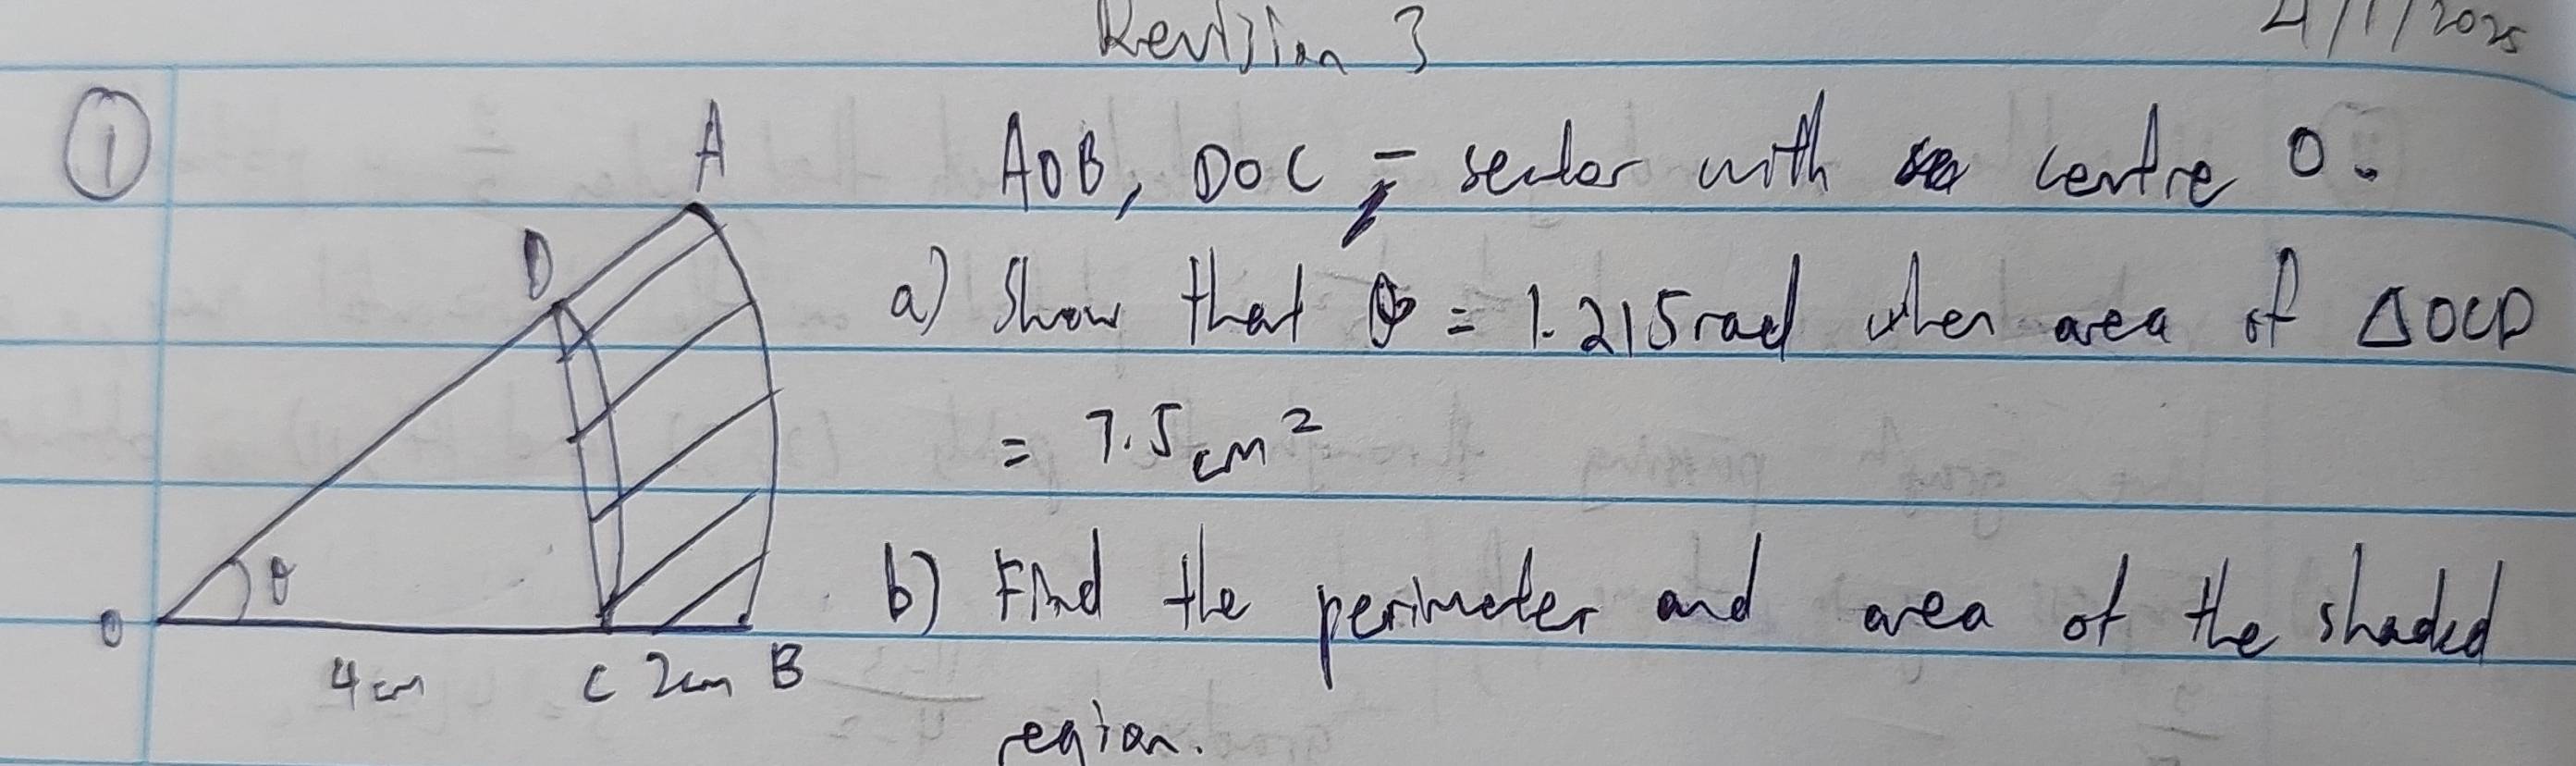 Revision 3
4/1/2025
① A AOB, DOC - sector with centre O.
D a) Show that θ = 1.215rad when area of △OCD
= 7.5cm²
θ b) Find the perimeter and area of the shaded
O 4cm C 2cm B
region.